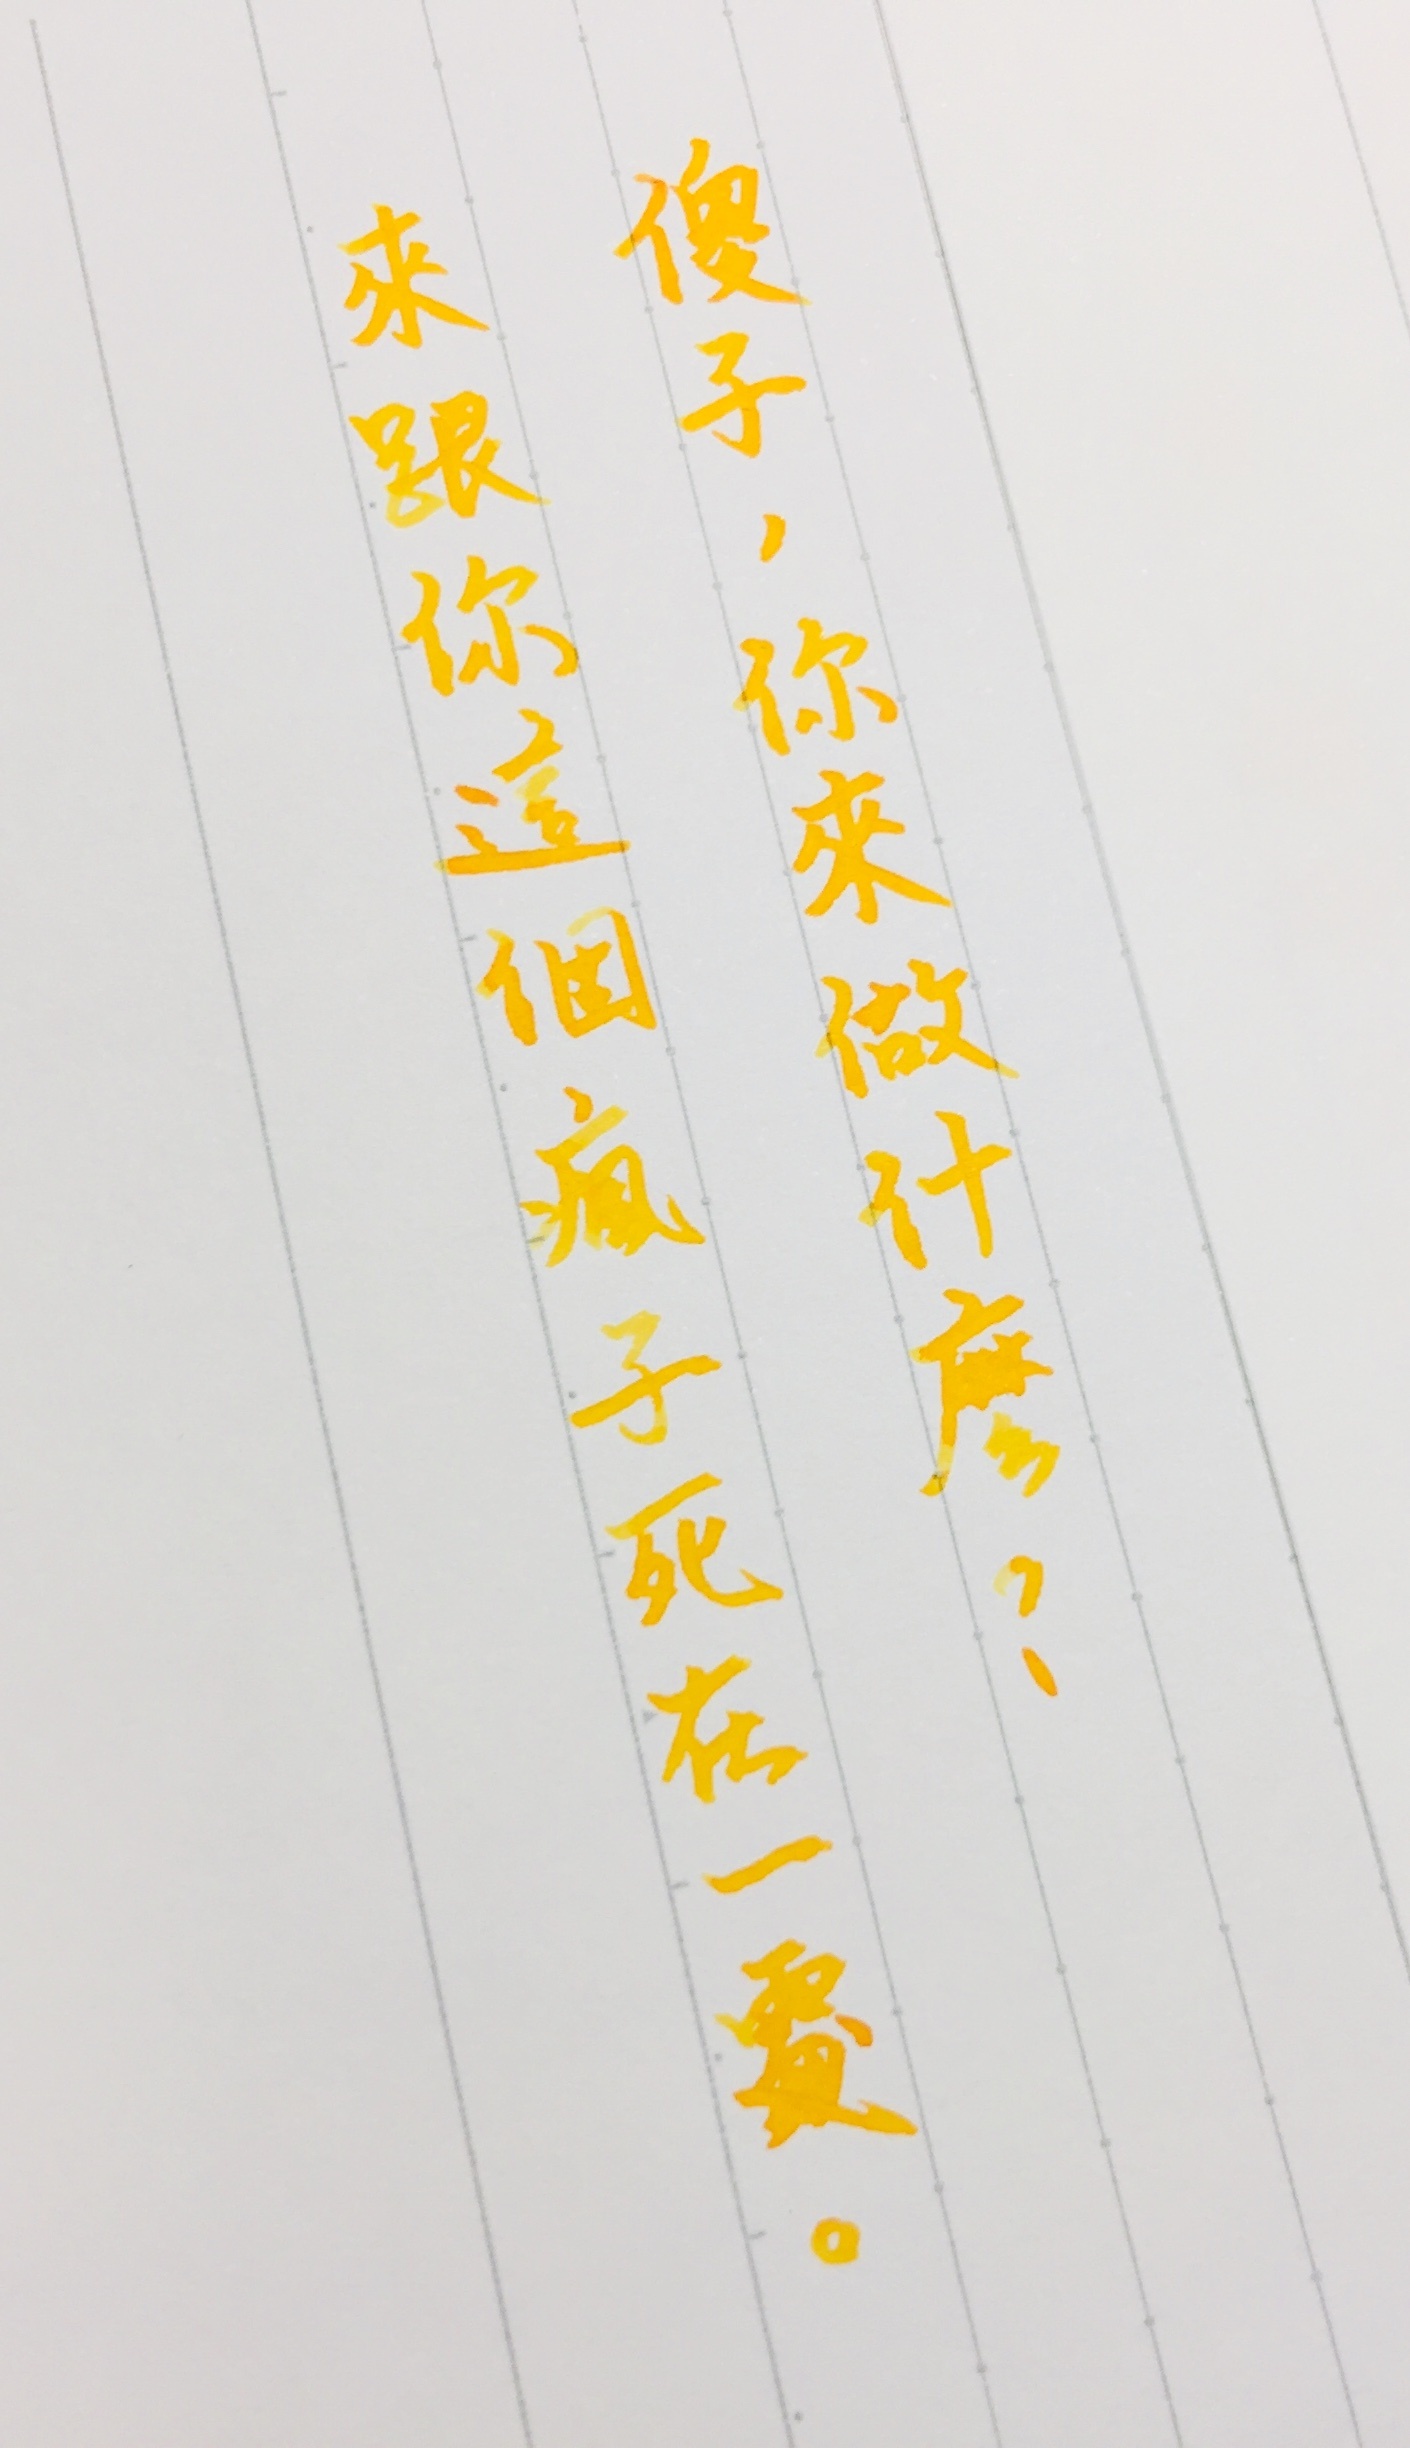 傻子，你來做什麼？
來跟你這個瘋子死在一處。